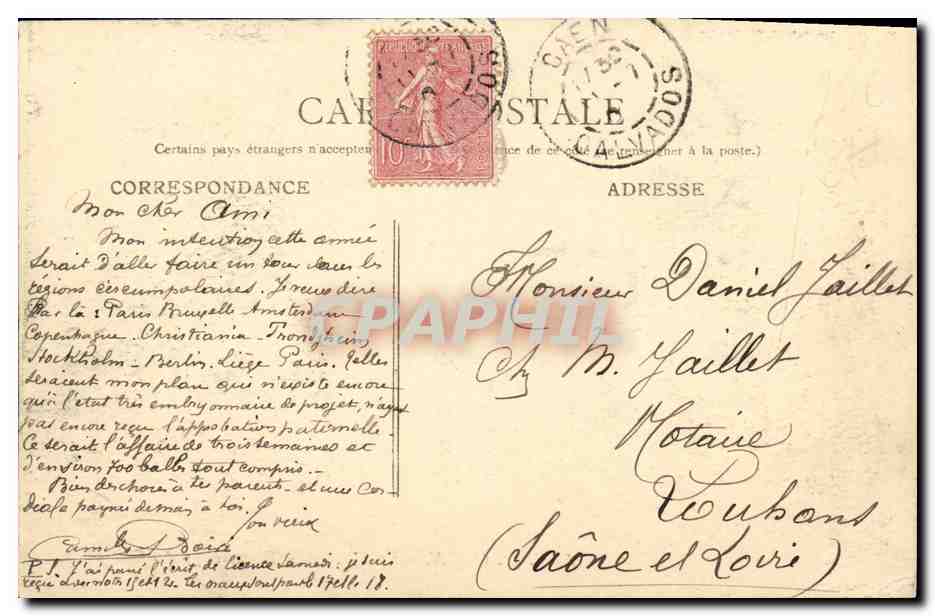 REPUBLIQUE FRANÇAISE
10
CAEN
CALVADOS
CARTE POSTALE
Certains pays étrangers n'acceptent de ce côté (se renseigner à la poste.)
CORRESPONDANCE
ADRESSE
Mon cher Ami
Mon intention cette année
serait d'aller faire un tour dans les
régions circumpolaires. Je veux dire
par là : Paris Bruxelle Amsterdam
Copenhague - Christiania - Trondjheim
Stockholm - Berlin. Liège Paris. Telles
seraient mon plan qui n'existe encore
qu'à l'état très embryonnaire de projet, n'ayant
pas encore reçu l'approbation paternelle.
Ce serait l'affaire de trois semaines et
d'environ 700 balles tout compris.-
Bien des choses à tes parents - et une cor-
diale poignée de main à toi.
Ton vieux
P.S. J'ai passé l'écrit de licence Samedi : je suis
reçu
Monsieur Daniel Jaillet
Chez M. Jaillet
Notaire
Louhans
(Saône et Loire)
CPAPHIL